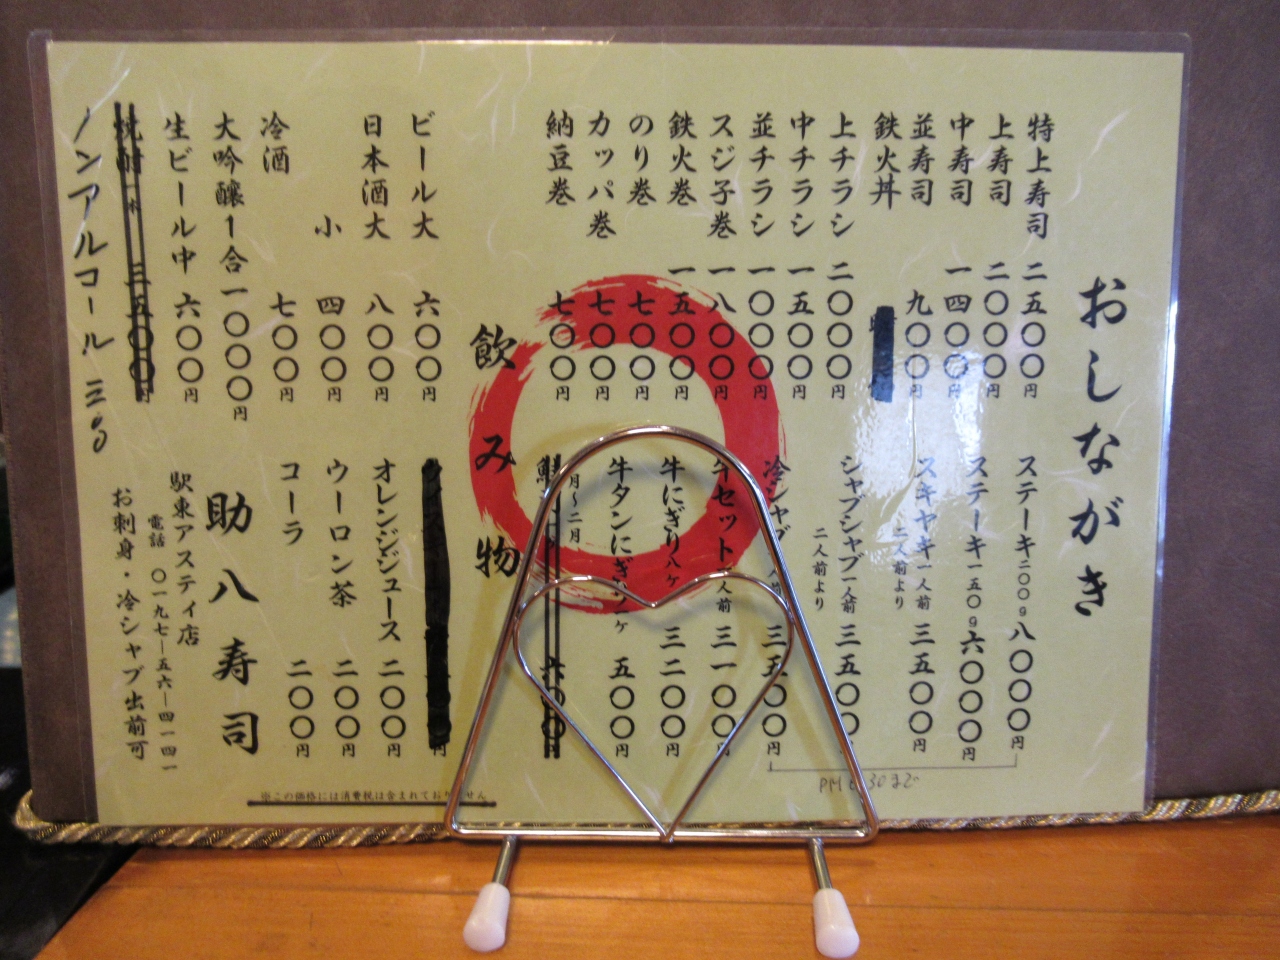 おしながき
特上寿司 二五〇〇円
上寿司 二〇〇〇円
中寿司 一四〇〇円
並寿司 九〇〇円
鉄火丼
上チラシ 二〇〇〇円
中チラシ 一五〇〇円
並チラシ 一〇〇〇円
スジ子巻 一八〇〇円
鉄火巻 一五〇〇円
のり巻 七〇〇円
カッパ巻 七〇〇円
納豆巻 七〇〇円
ステーキ二〇〇g 八〇〇〇円
ステーキ一五〇g 六〇〇〇円
スキヤキ一人前 三五〇〇円
二人前より
シャブシャブ一人前 三五〇〇円
二人前より
冷シャブ 人前 三五〇〇円
牛セット 人前 三一〇〇円
牛にぎり八ケ 三二〇〇円
牛タンにぎり 一ケ 五〇〇円
月〜二月
六〇〇
飲み物
ビール大 六〇〇円
日本酒大 八〇〇円
小 四〇〇円
冷酒 七〇〇円
大吟醸1合 一〇〇〇円
生ビール中 六〇〇円
焼酎一本 三五〇〇円
ノンアルコール 三五〇
オレンジジュース 二〇〇円
ウーロン茶 二〇〇円
コーラ 二〇〇円
助八寿司
駅東アスティ店
電話 〇一九七―五六―四一四一
お刺身・冷シャブ出前可
※この価格には消費税は含まれておりません